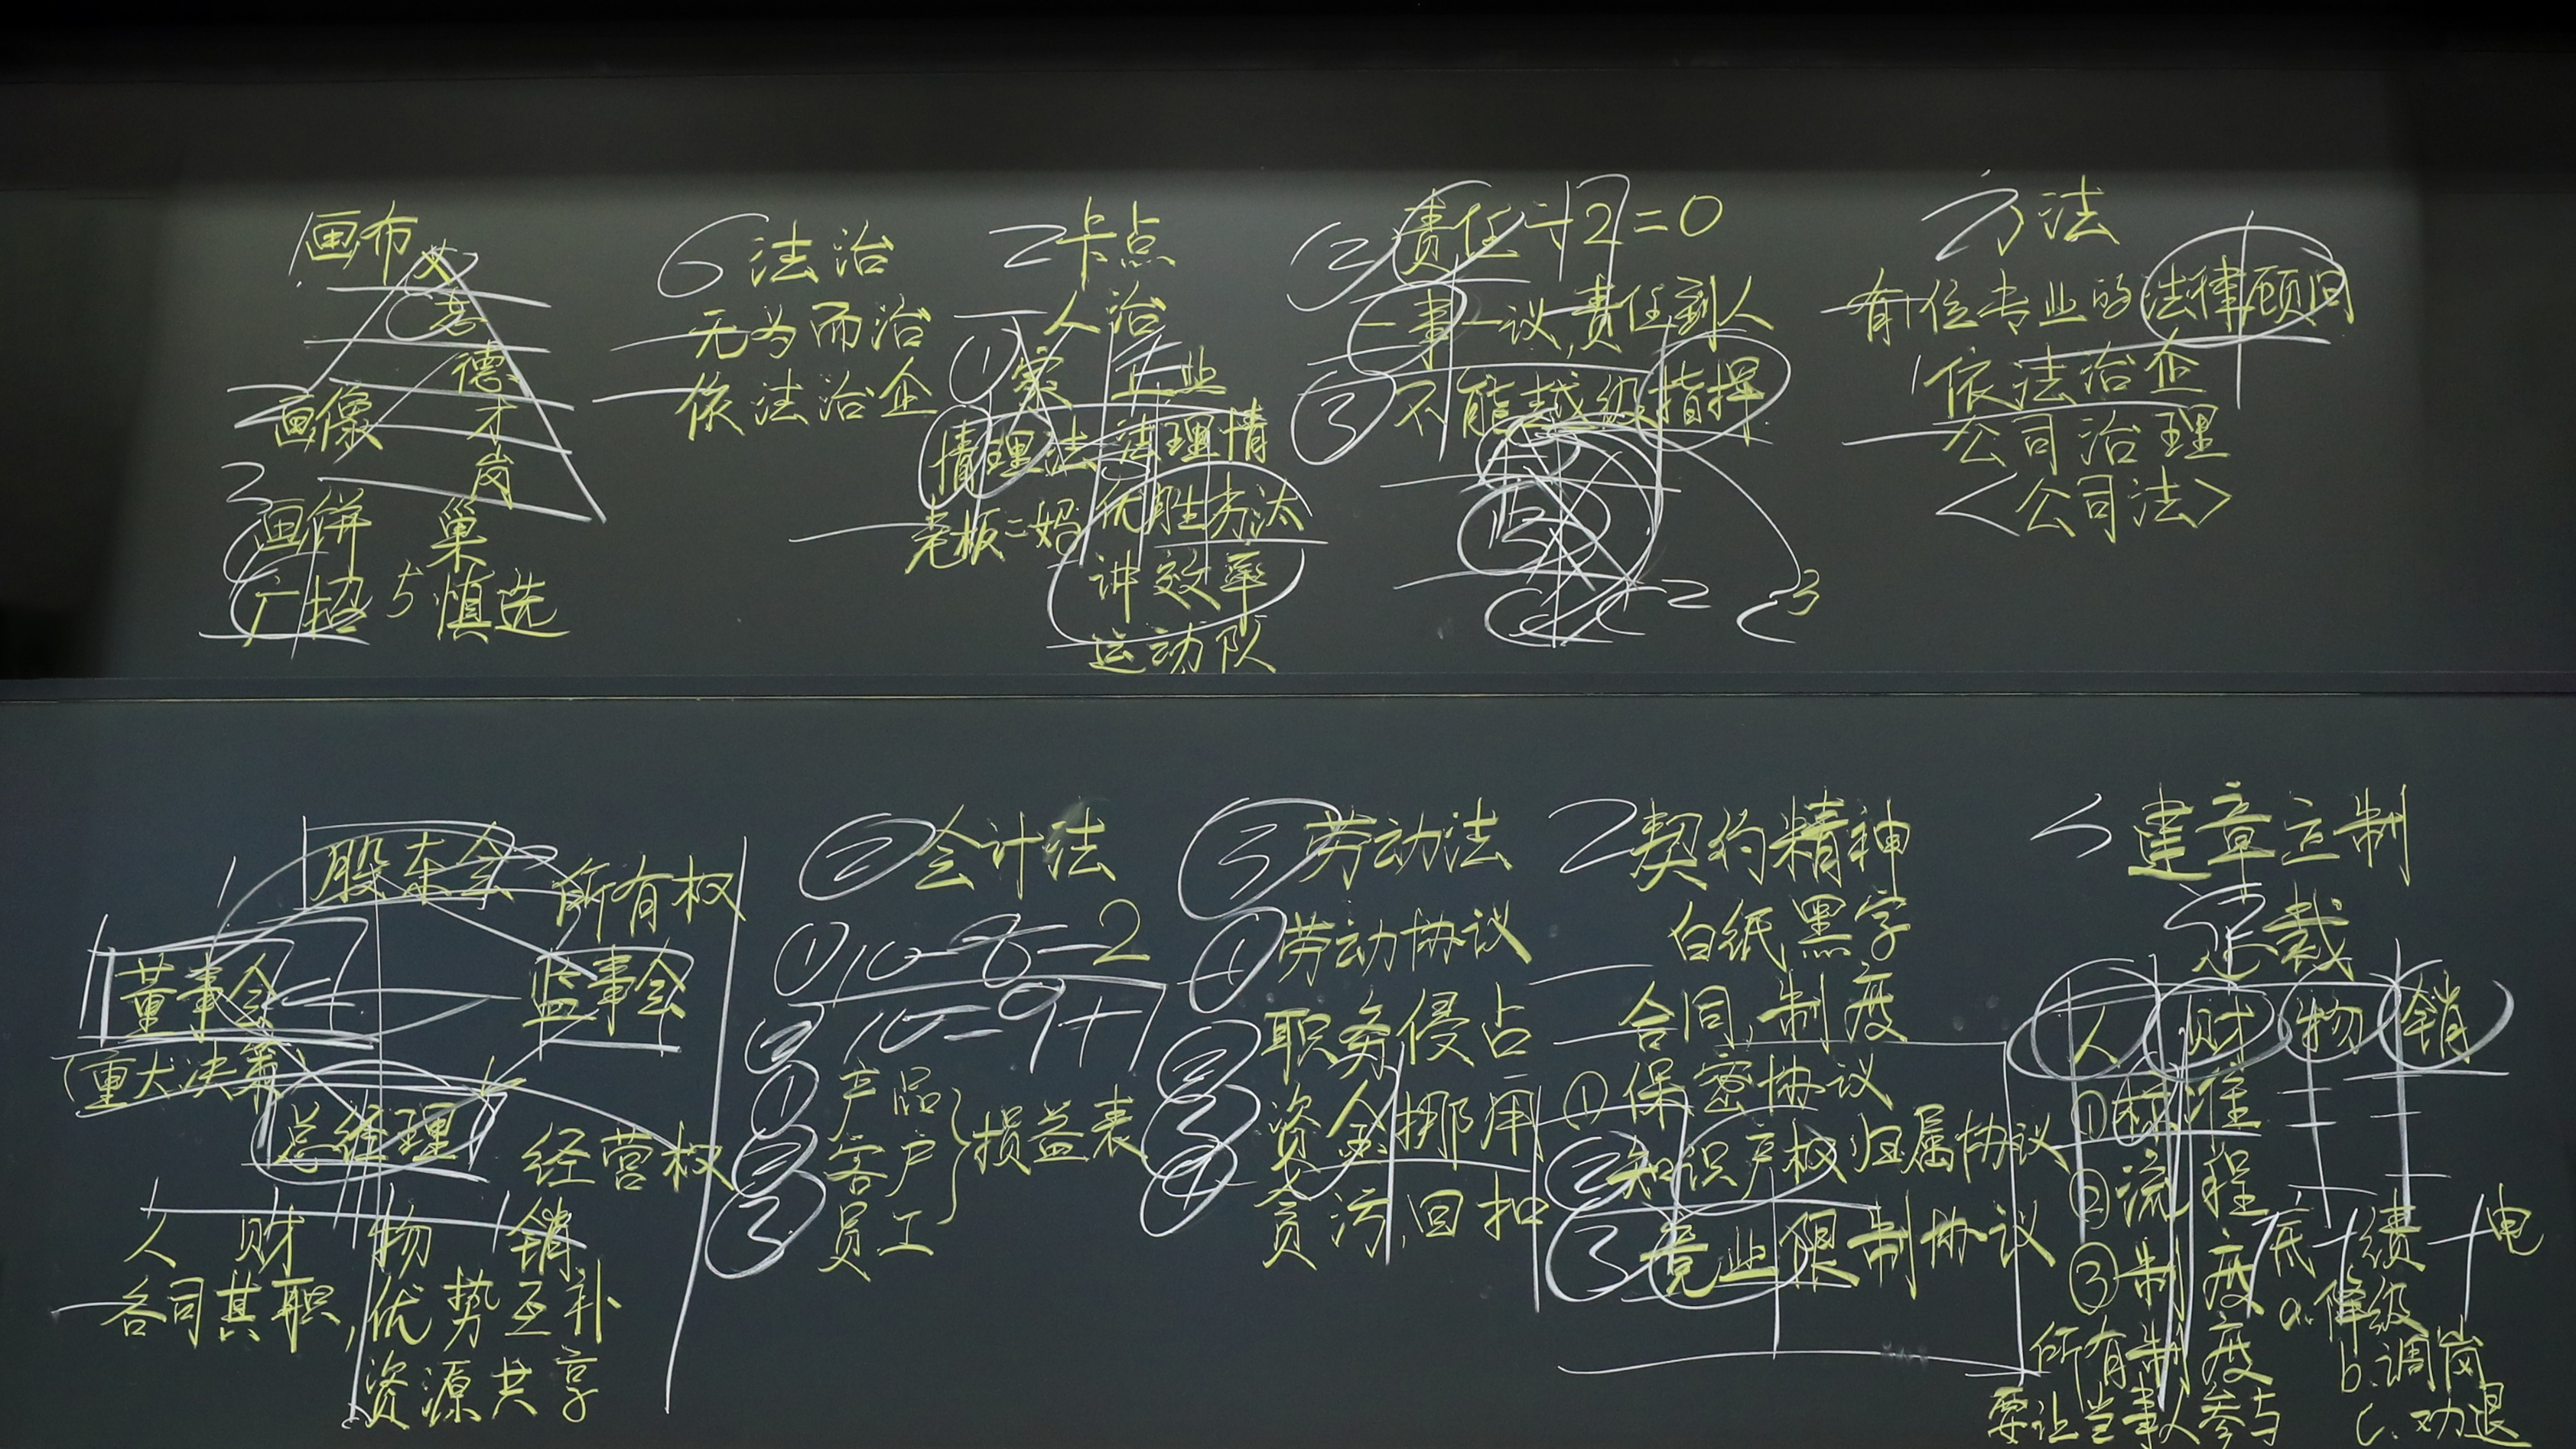 1 画布
义
志
德
才
岗
2 画像
3 画饼 巢
4 广招 5 慎选
6 法治
一 无为而治
一 依法治企
2 卡点
一 人治
① 家 企业
情理法 法理情
一 老板=妈 优胜劣汰
讲效率
运动队
② 责任÷2=0
一事一议,责任到人
③ 不能越级指挥
方法
一有位专业的法律顾问
1 依法治企
一 公司治理
<公司法>
1 股东会 所有权
董事会 监事会
(重大决策)
总经理 经营权
人 财 物 销
一各司其职,优势互补
资源共享
② 会计法
① 10-8=2
② 10=9+1
① 产品
② 客户 } 损益表
③ 员工
③ 劳动法
① 劳动协议
② 职务侵占
③ 资金挪用
④ 贪污,回扣
2 契约精神
白纸,黑字
一 合同,制度
① 保密协议
② 知识产权归属协议
③ 竞业限制协议
3 建章立制
总裁
人 财 物 销
① 标准
② 流程
③ 制度
底+绩+电
a.降级
b.调岗
c.劝退
所有制度
要让当事人参与